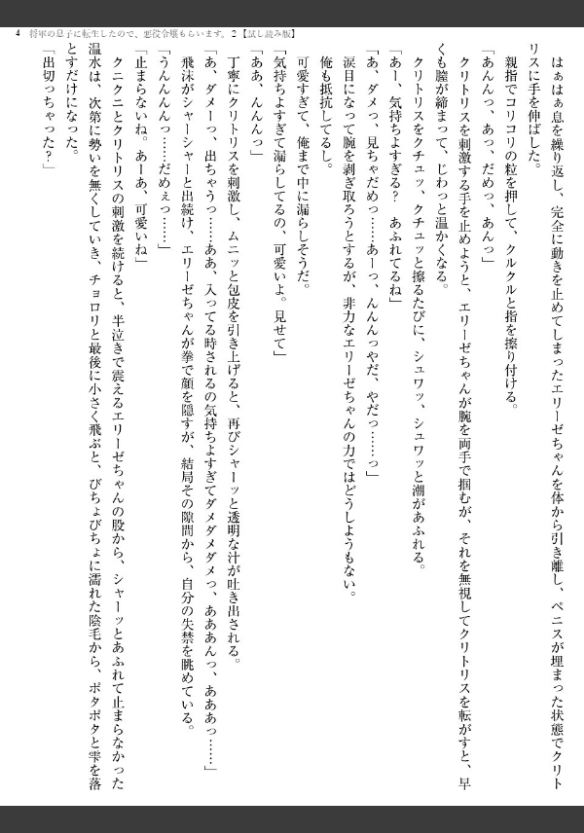 4　将軍の息子に転生したので、悪役令嬢もらいます。2【試し読み版】
はぁはぁ息を繰り返し、完全に動きを止めてしまったエリーゼちゃんを体から引き離し、ペニスが埋まった状態でクリト
リスに手を伸ばした。
親指でコリコリの粒を押して、クルクルと指を擦り付ける。
「あんんっ、あっ、だめっ、あんっ」
クリトリスを刺激する手を止めようと、エリーゼちゃんが腕を両手で掴むが、それを無視してクリトリスを転がすと、早
くも膣が締まって、じわっと温かくなる。
クリトリスをクチュッ、クチュッと擦るたびに、シュワッ、シュワッと潮があふれる。
「あー、気持ちよすぎる？　あふれてるね」
「あ、ダメっ、見ちゃだめっ……あーっ、んんんっやだ、やだっ……っ」
涙目になって腕を剥ぎ取ろうとするが、非力なエリーゼちゃんの力ではどうしようもない。
俺も抵抗してるし。
可愛すぎて、俺まで中に漏らしそうだ。
「気持ちよすぎて漏らしてるの、可愛いよ。見せて」
「ああ、んんんっ」
丁寧にクリトリスを刺激し、ムニッと包皮を引き上げると、再びシャーッと透明な汁が吐き出される。
「あ、ダメーっ、出ちゃうっ……ああ、入ってる時されるの気持ちよすぎてダメダメダメっ、あああんっ、あああっ……」
飛沫がシャーシャーと出続け、エリーゼちゃんが拳で顔を隠すが、結局その隙間から、自分の失禁を眺めている。
「うんんんんっ……だめぇっ……」
「止まらないね。あーあ、可愛いね」
クニクニとクリトリスの刺激を続けると、半泣きで震えるエリーゼちゃんの股から、シャーッとあふれて止まらなかった
温水は、次第に勢いを無くしていき、チョロリと最後に小さく飛ぶと、びちょびちょに濡れた陰毛から、ポタポタと雫を落
とすだけになった。
「出切っちゃった？」